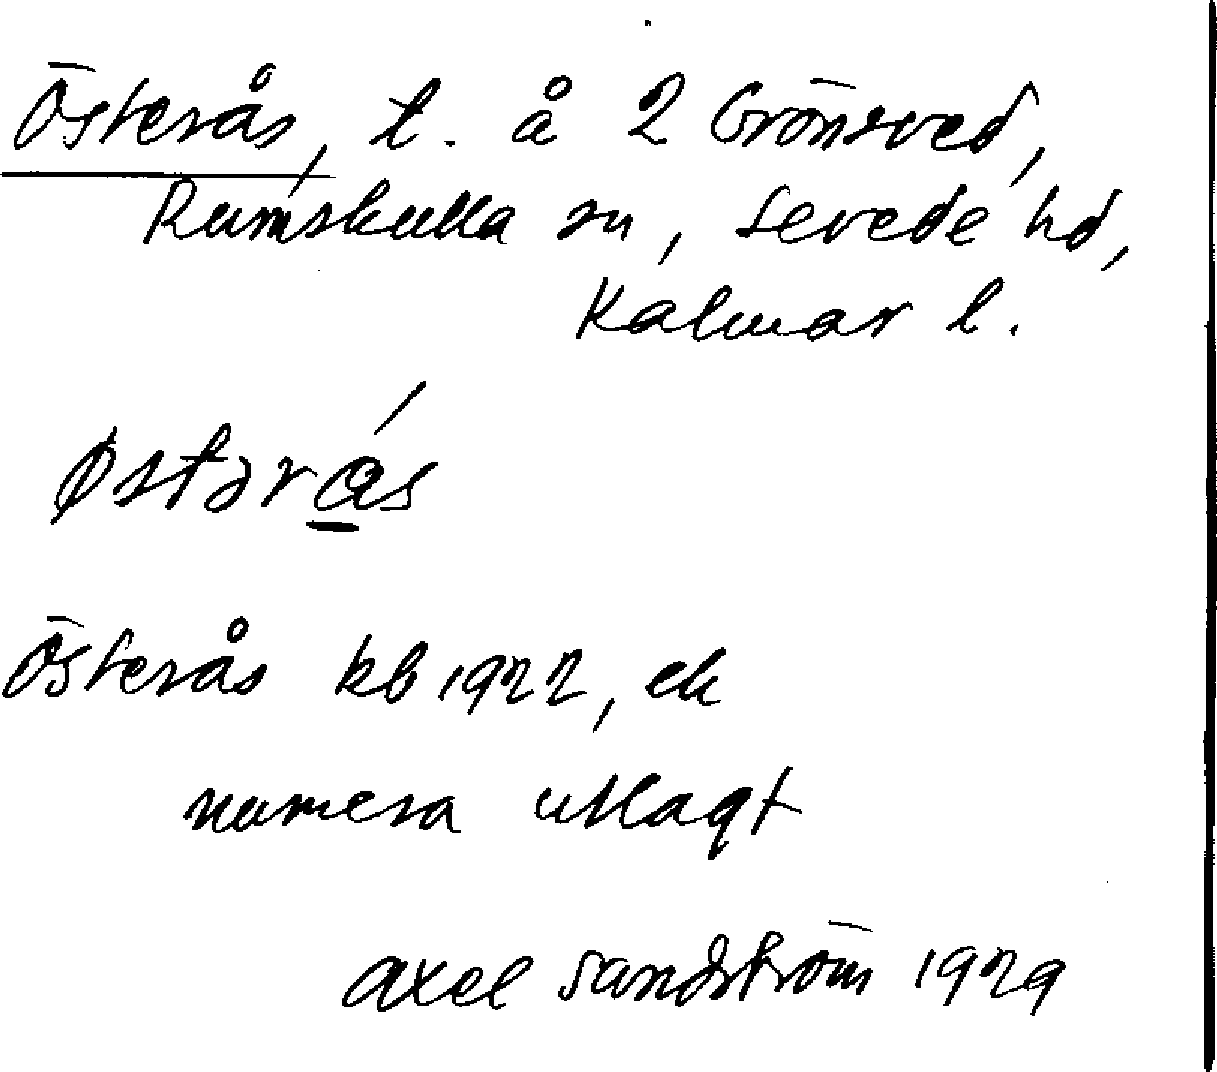 Österås, t. å 2 Grönsved,
Rumskulla sn, Sevede hd,
Kalmar l.
østərås
Österås kb 1922, ek
numera utlagt
Axel Sandström 1929